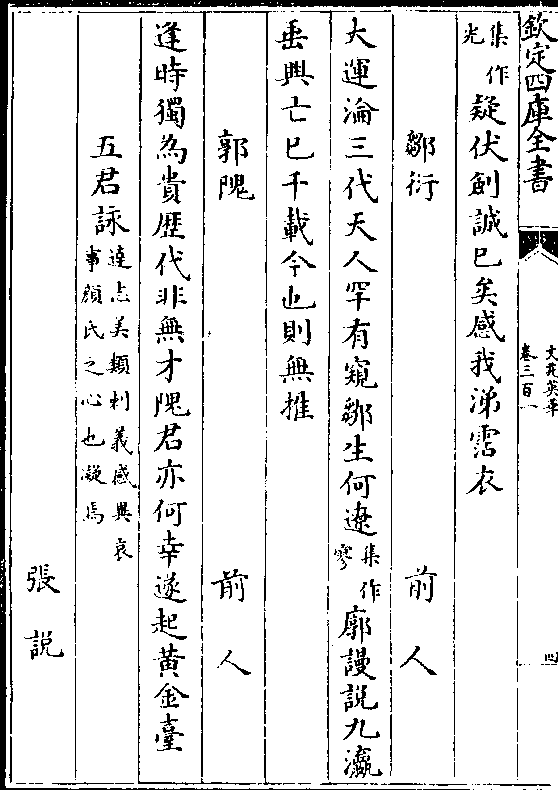 欽定四庫全書
文苑英華
卷三百一
四
集作光疑伏劍誠已矣感我涕霑衣
鄒衍 前人
大運淪三代天人罕有窺鄒生何遼集作寥廓謾説九瀛
垂興亡已千載今也則無推
郭隗 前人
逢時獨為貴歴代非無才隗君亦何幸遂起黄金臺
五君詠達志美類刺義感興哀
事頗氏之心也凝焉
張説